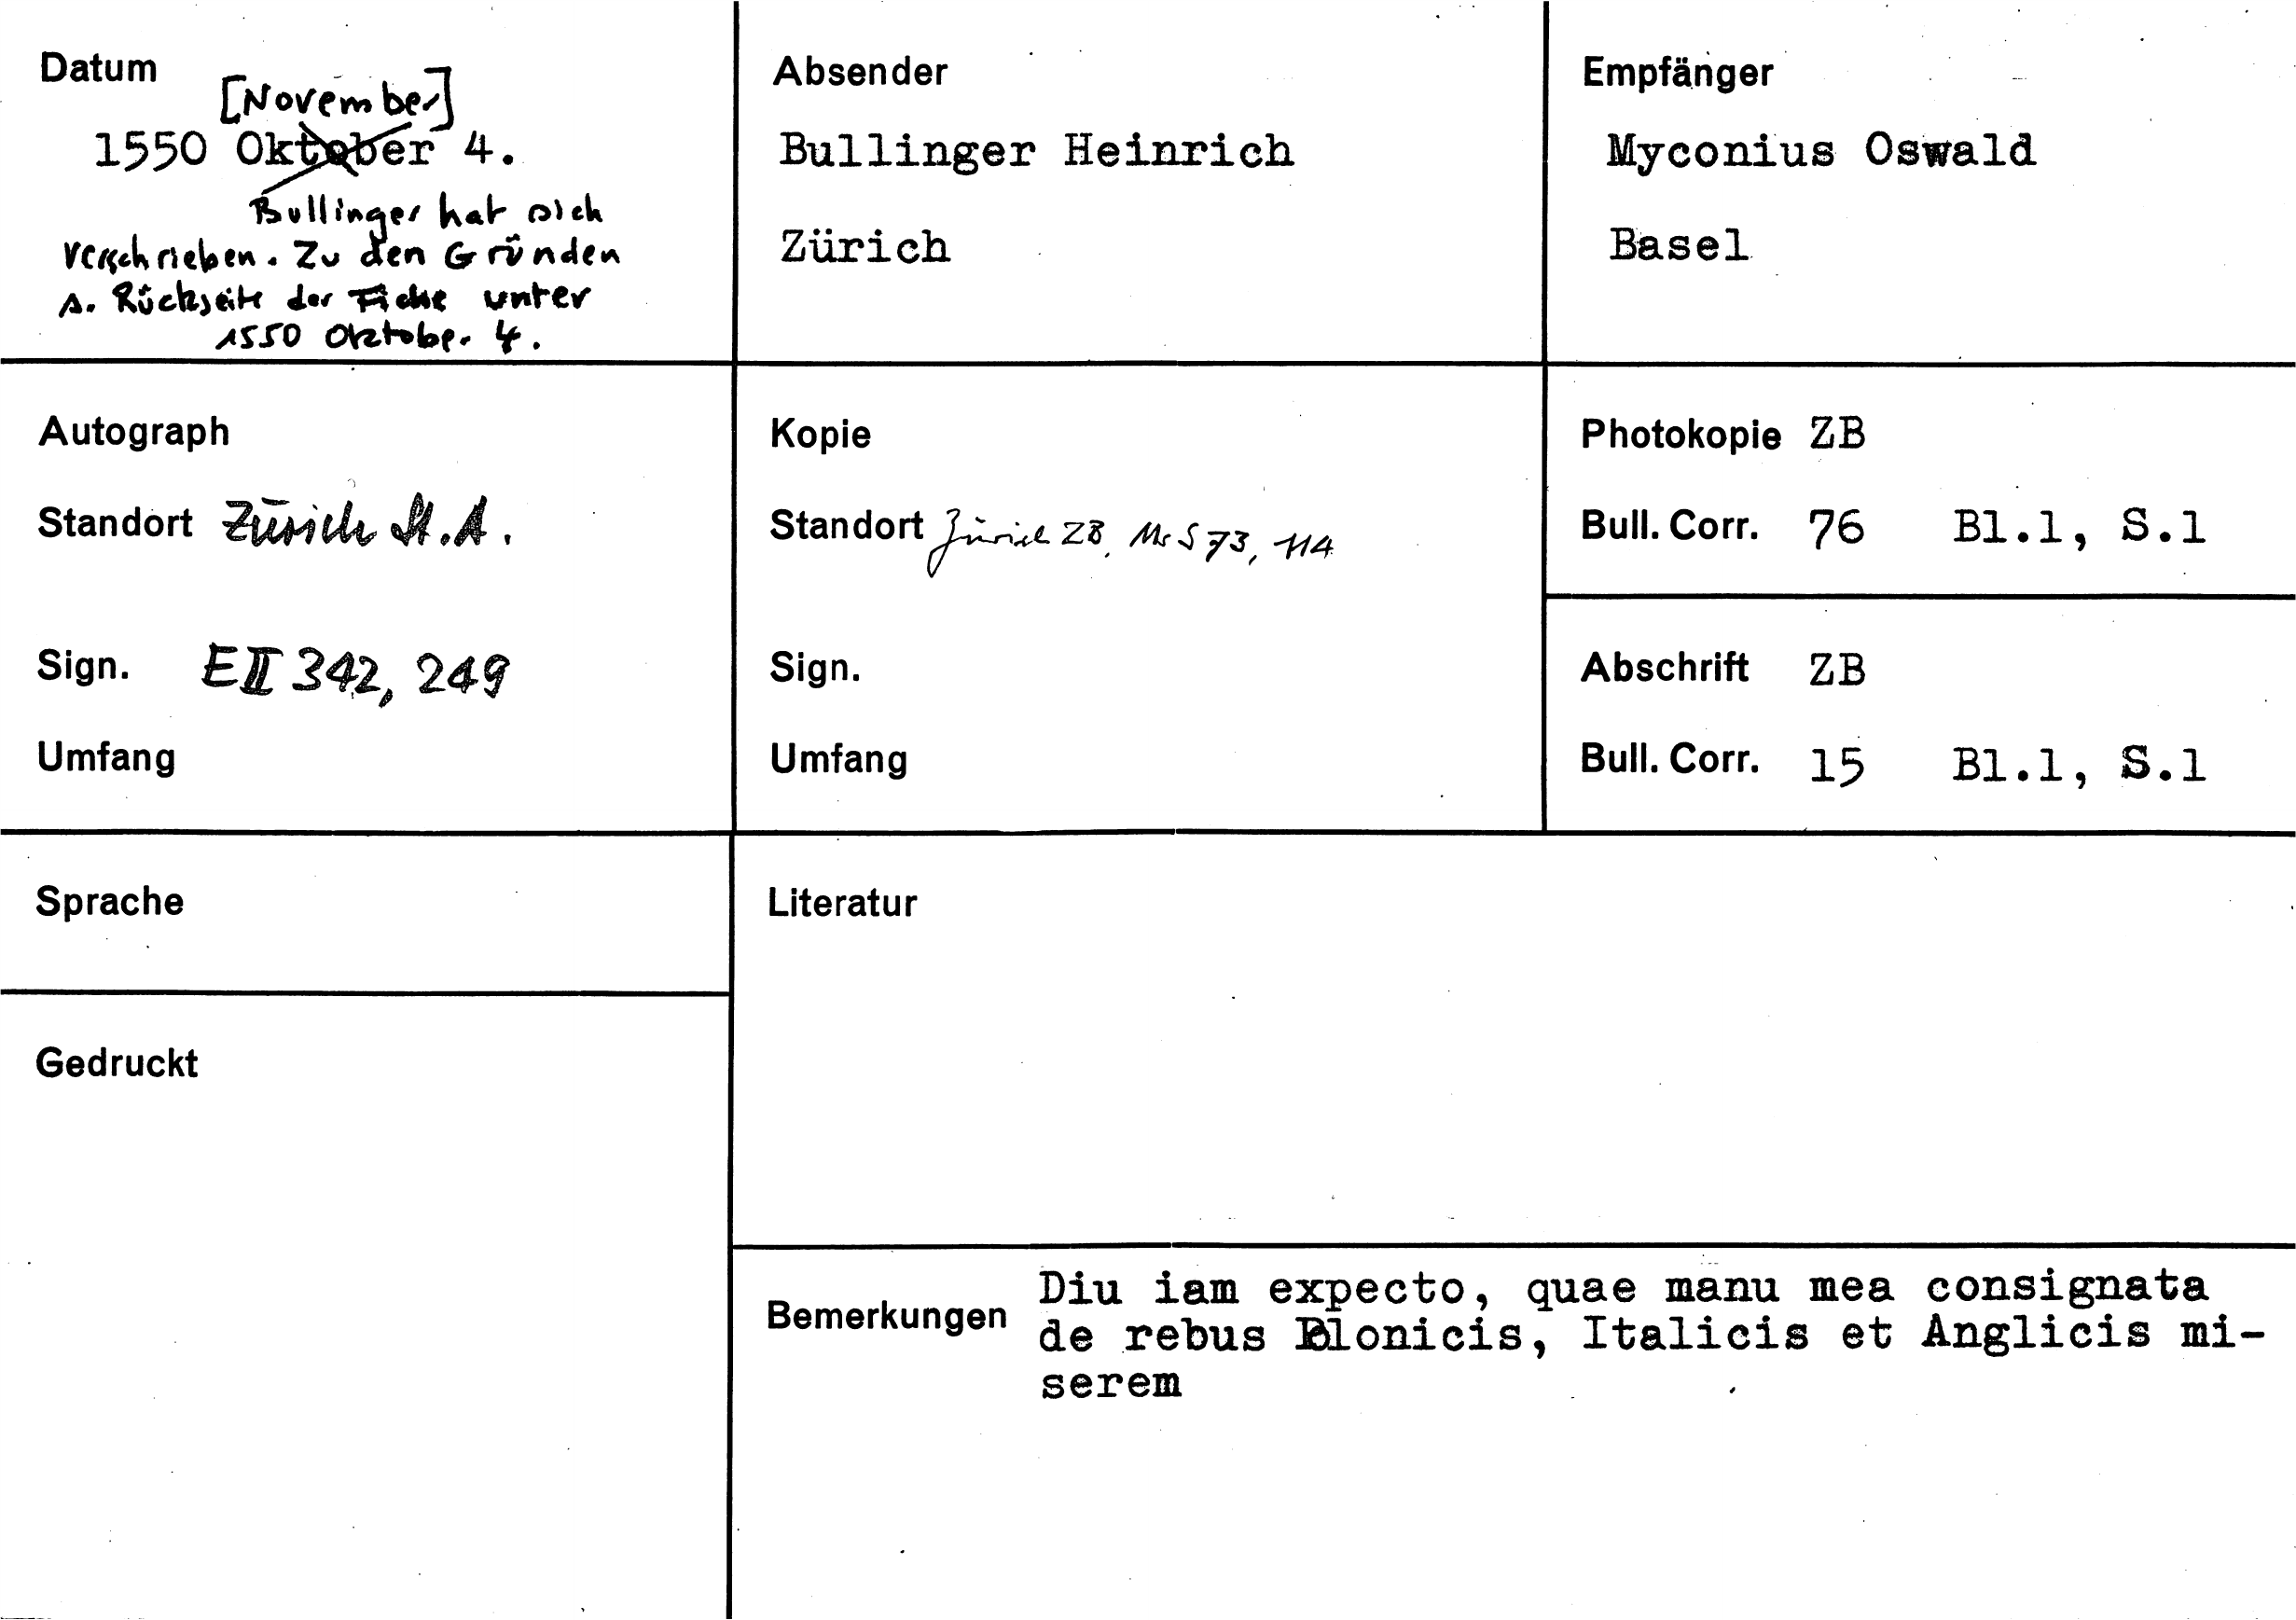 Datum
[November]
1550 Oktober 4.
Bullinger hat sich
verschrieben. Zu den Gründen
s. Rückseite der Fiche unter
1550 Oktober 4.
Absender
Bullinger Heinrich
Zürich
Empfänger
Myconius Oswald
Basel
Autograph
Standort Zürich St.A.
Sign. E II 342, 249
Umfang
Kopie
Standort Zürich ZB, Ms S 73, 114
Sign.
Umfang
Photokopie ZB
Bull. Corr. 76 Bl.1, S.1
Abschrift ZB
Bull. Corr. 15 Bl.1, S.1
Sprache
Literatur
Gedruckt
Bemerkungen
Diu iam expecto, quae manu mea consignata
de rebus Blonicis, Italicis et Anglicis mi-
serem